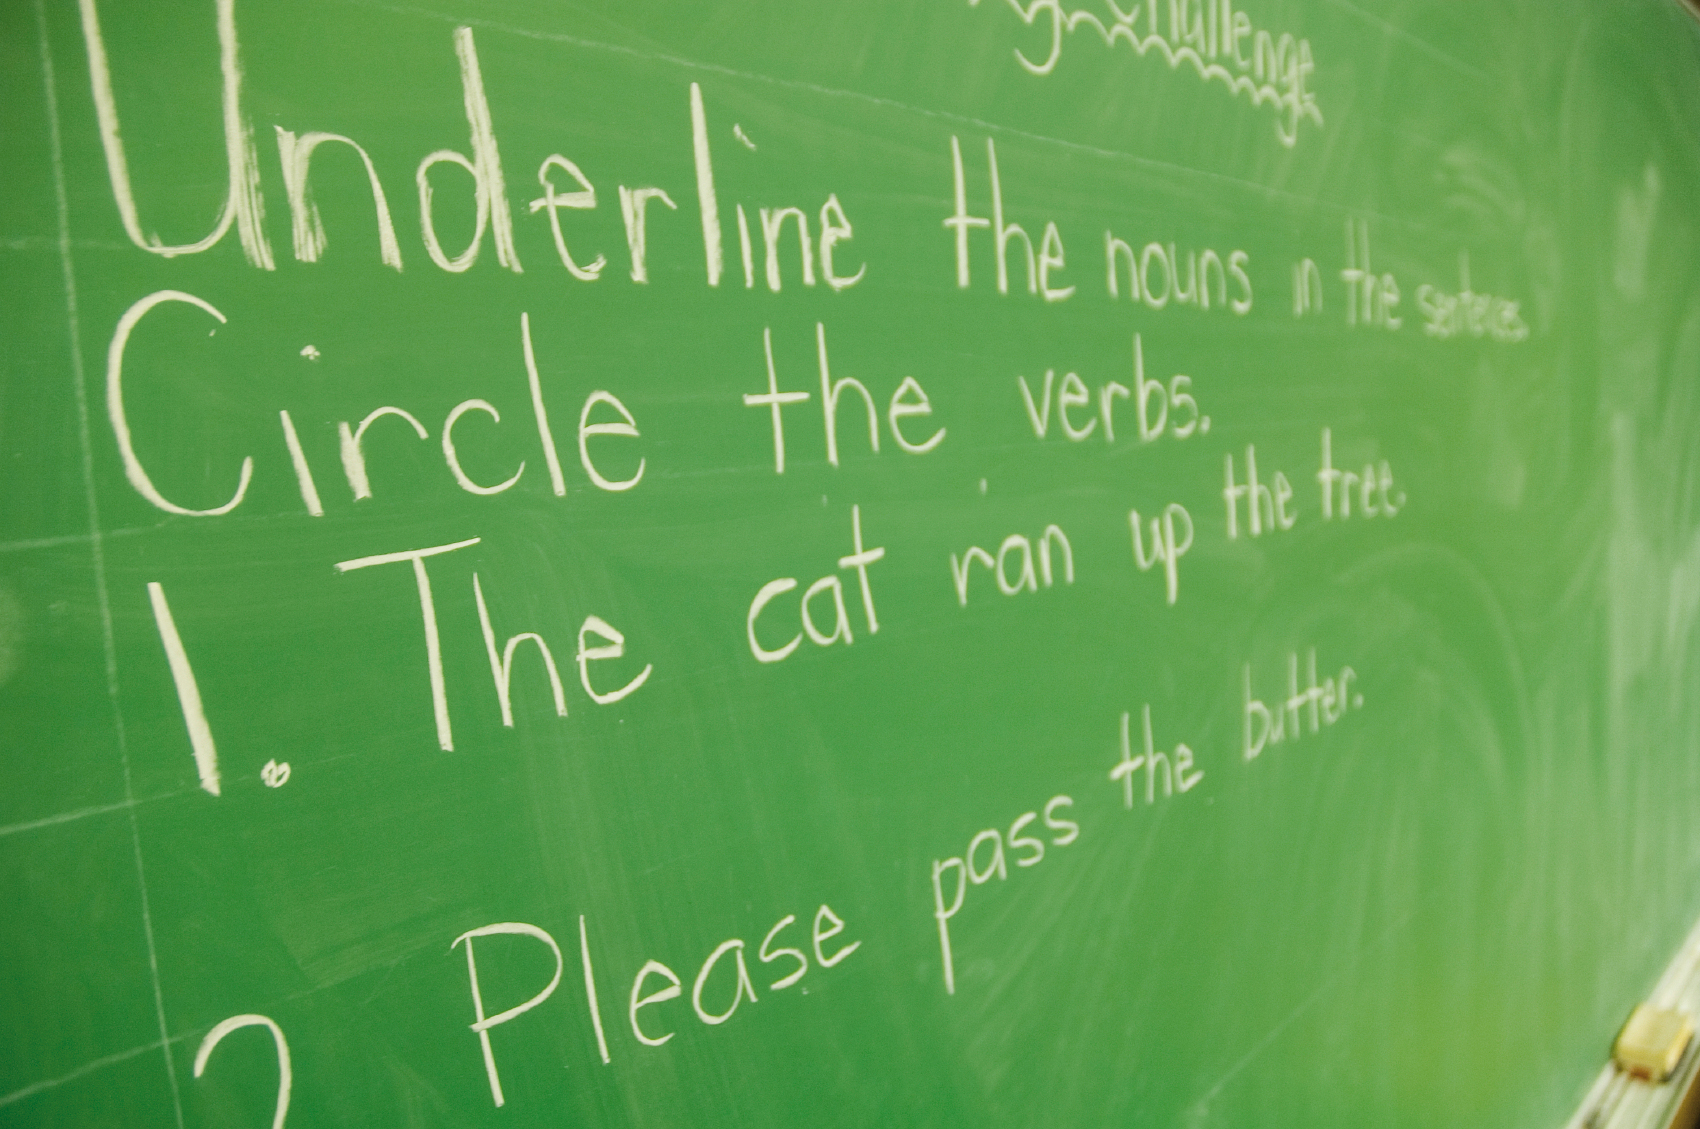 Challenge
Underline the nouns in the sentences.
Circle the verbs.
1. The cat ran up the tree.
2 Please pass the butter.